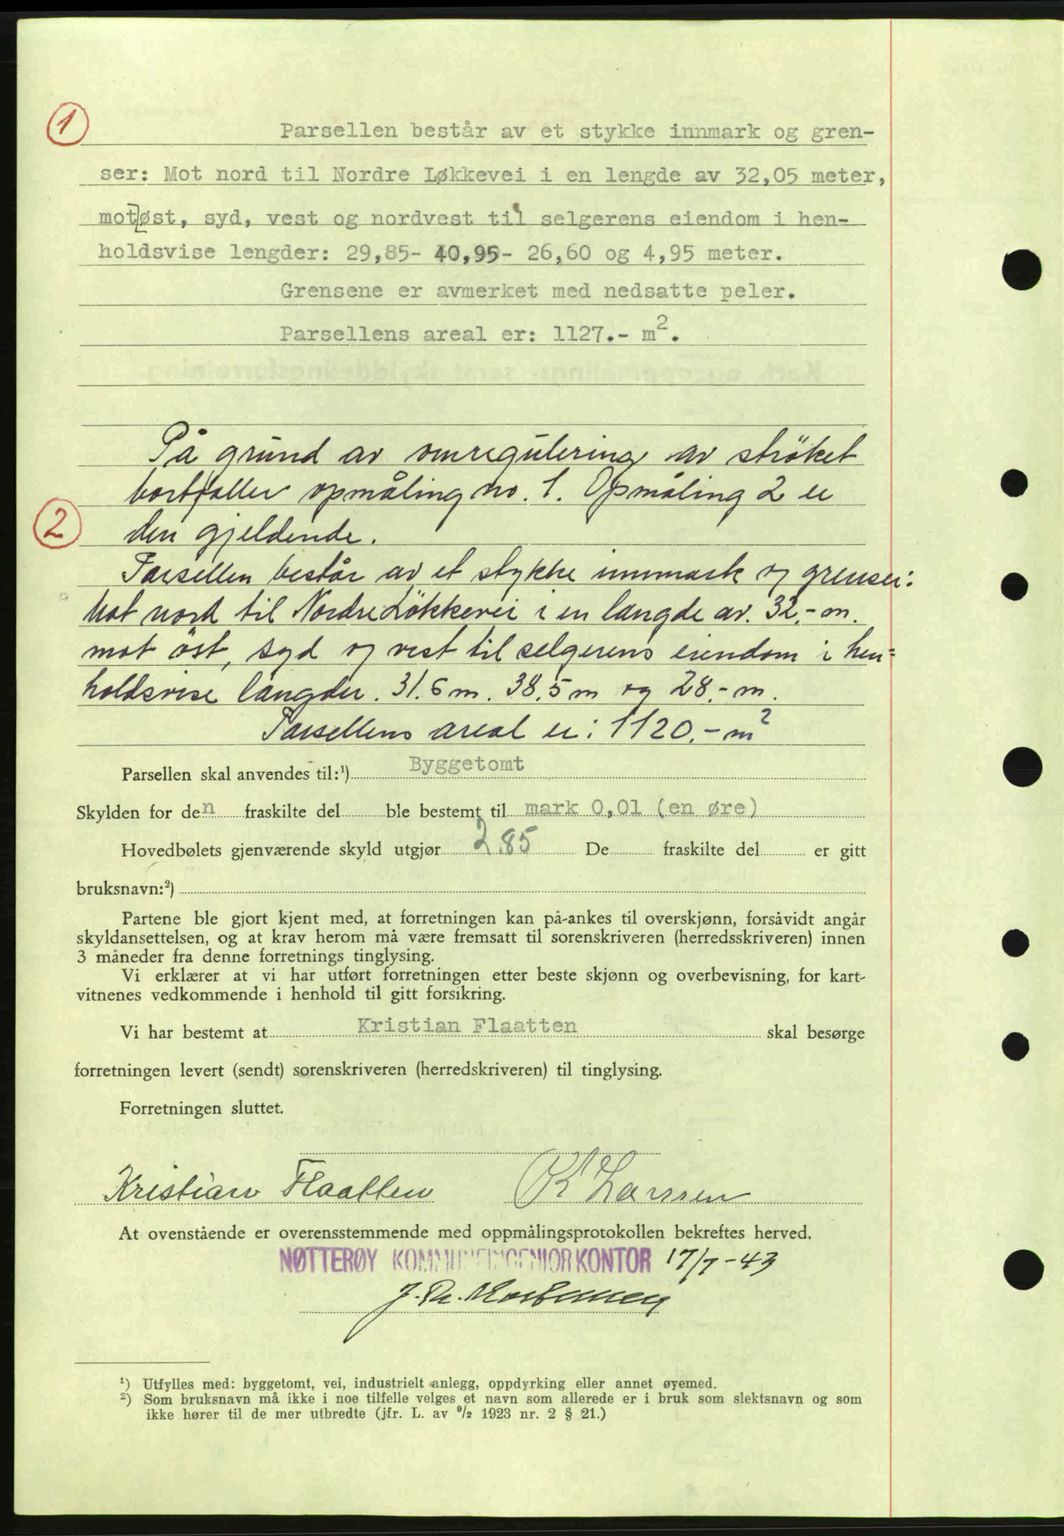 1
Parsellen består av et stykke innmark og gren-
ser: Mot nord til Nordre Løkkevei i en lengde av 32,05 meter,
mot øst, syd, vest og nordvest til selgerens eiendom i hen-
holdsvise lengder: 29,85- 40,95- 26,60 og 4,95 meter.
Grensene er avmerket med nedsatte peler.
Parsellens areal er: 1127.- m².
På grund av omregulering av strøket
bortfaller opmåling no. 1. Opmåling 2 er
2
den gjeldende.
Parsellen består av et stykke innmark og grenser:
Mot nord til Nordre Løkkevei i en længde av. 32.- m.
mot øst, syd og vest til selgerens eiendom i hen=
holdsvise længder. 31.6 m. 38.5 m og 28.- m.
Parsellens areal er: 1120.- m²
Parsellen skal anvendes til:¹) Byggetomt
Skylden for den fraskilte del ble bestemt til mark 0,01 (en øre)
Hovedbølets gjenværende skyld utgjør 2.85 De fraskilte del er gitt
bruksnavn:²)
Partene ble gjort kjent med, at forretningen kan på-ankes til overskjønn, forsåvidt angår
skyldansettelsen, og at krav herom må være fremsatt til sorenskriveren (herredsskriveren) innen
3 måneder fra denne forretnings tinglysing.
Vi erklærer at vi har utført forretningen etter beste skjønn og overbevisning, for kart-
vitnenes vedkommende i henhold til gitt forsikring.
Vi har bestemt at Kristian Flaatten skal besørge
forretningen levert (sendt) sorenskriveren (herredskriveren) til tinglysing.
Forretningen sluttet.
Kristian Flaatten K Larssen
At ovenstående er overensstemmende med oppmålingsprotokollen bekreftes herved.
NØTTERØY KOMMUNEINGENIØRKONTOR 17/7-43
¹) Utfylles med: byggetomt, vei, industrielt anlegg, oppdyrking eller annet øyemed.
²) Som bruksnavn må ikke i noe tilfelle velges et navn som allerede er i bruk som slektsnavn og som
ikke hører til de mer utbredte (jfr. L. av ⁹/₂ 1923 nr. 2 § 21.)